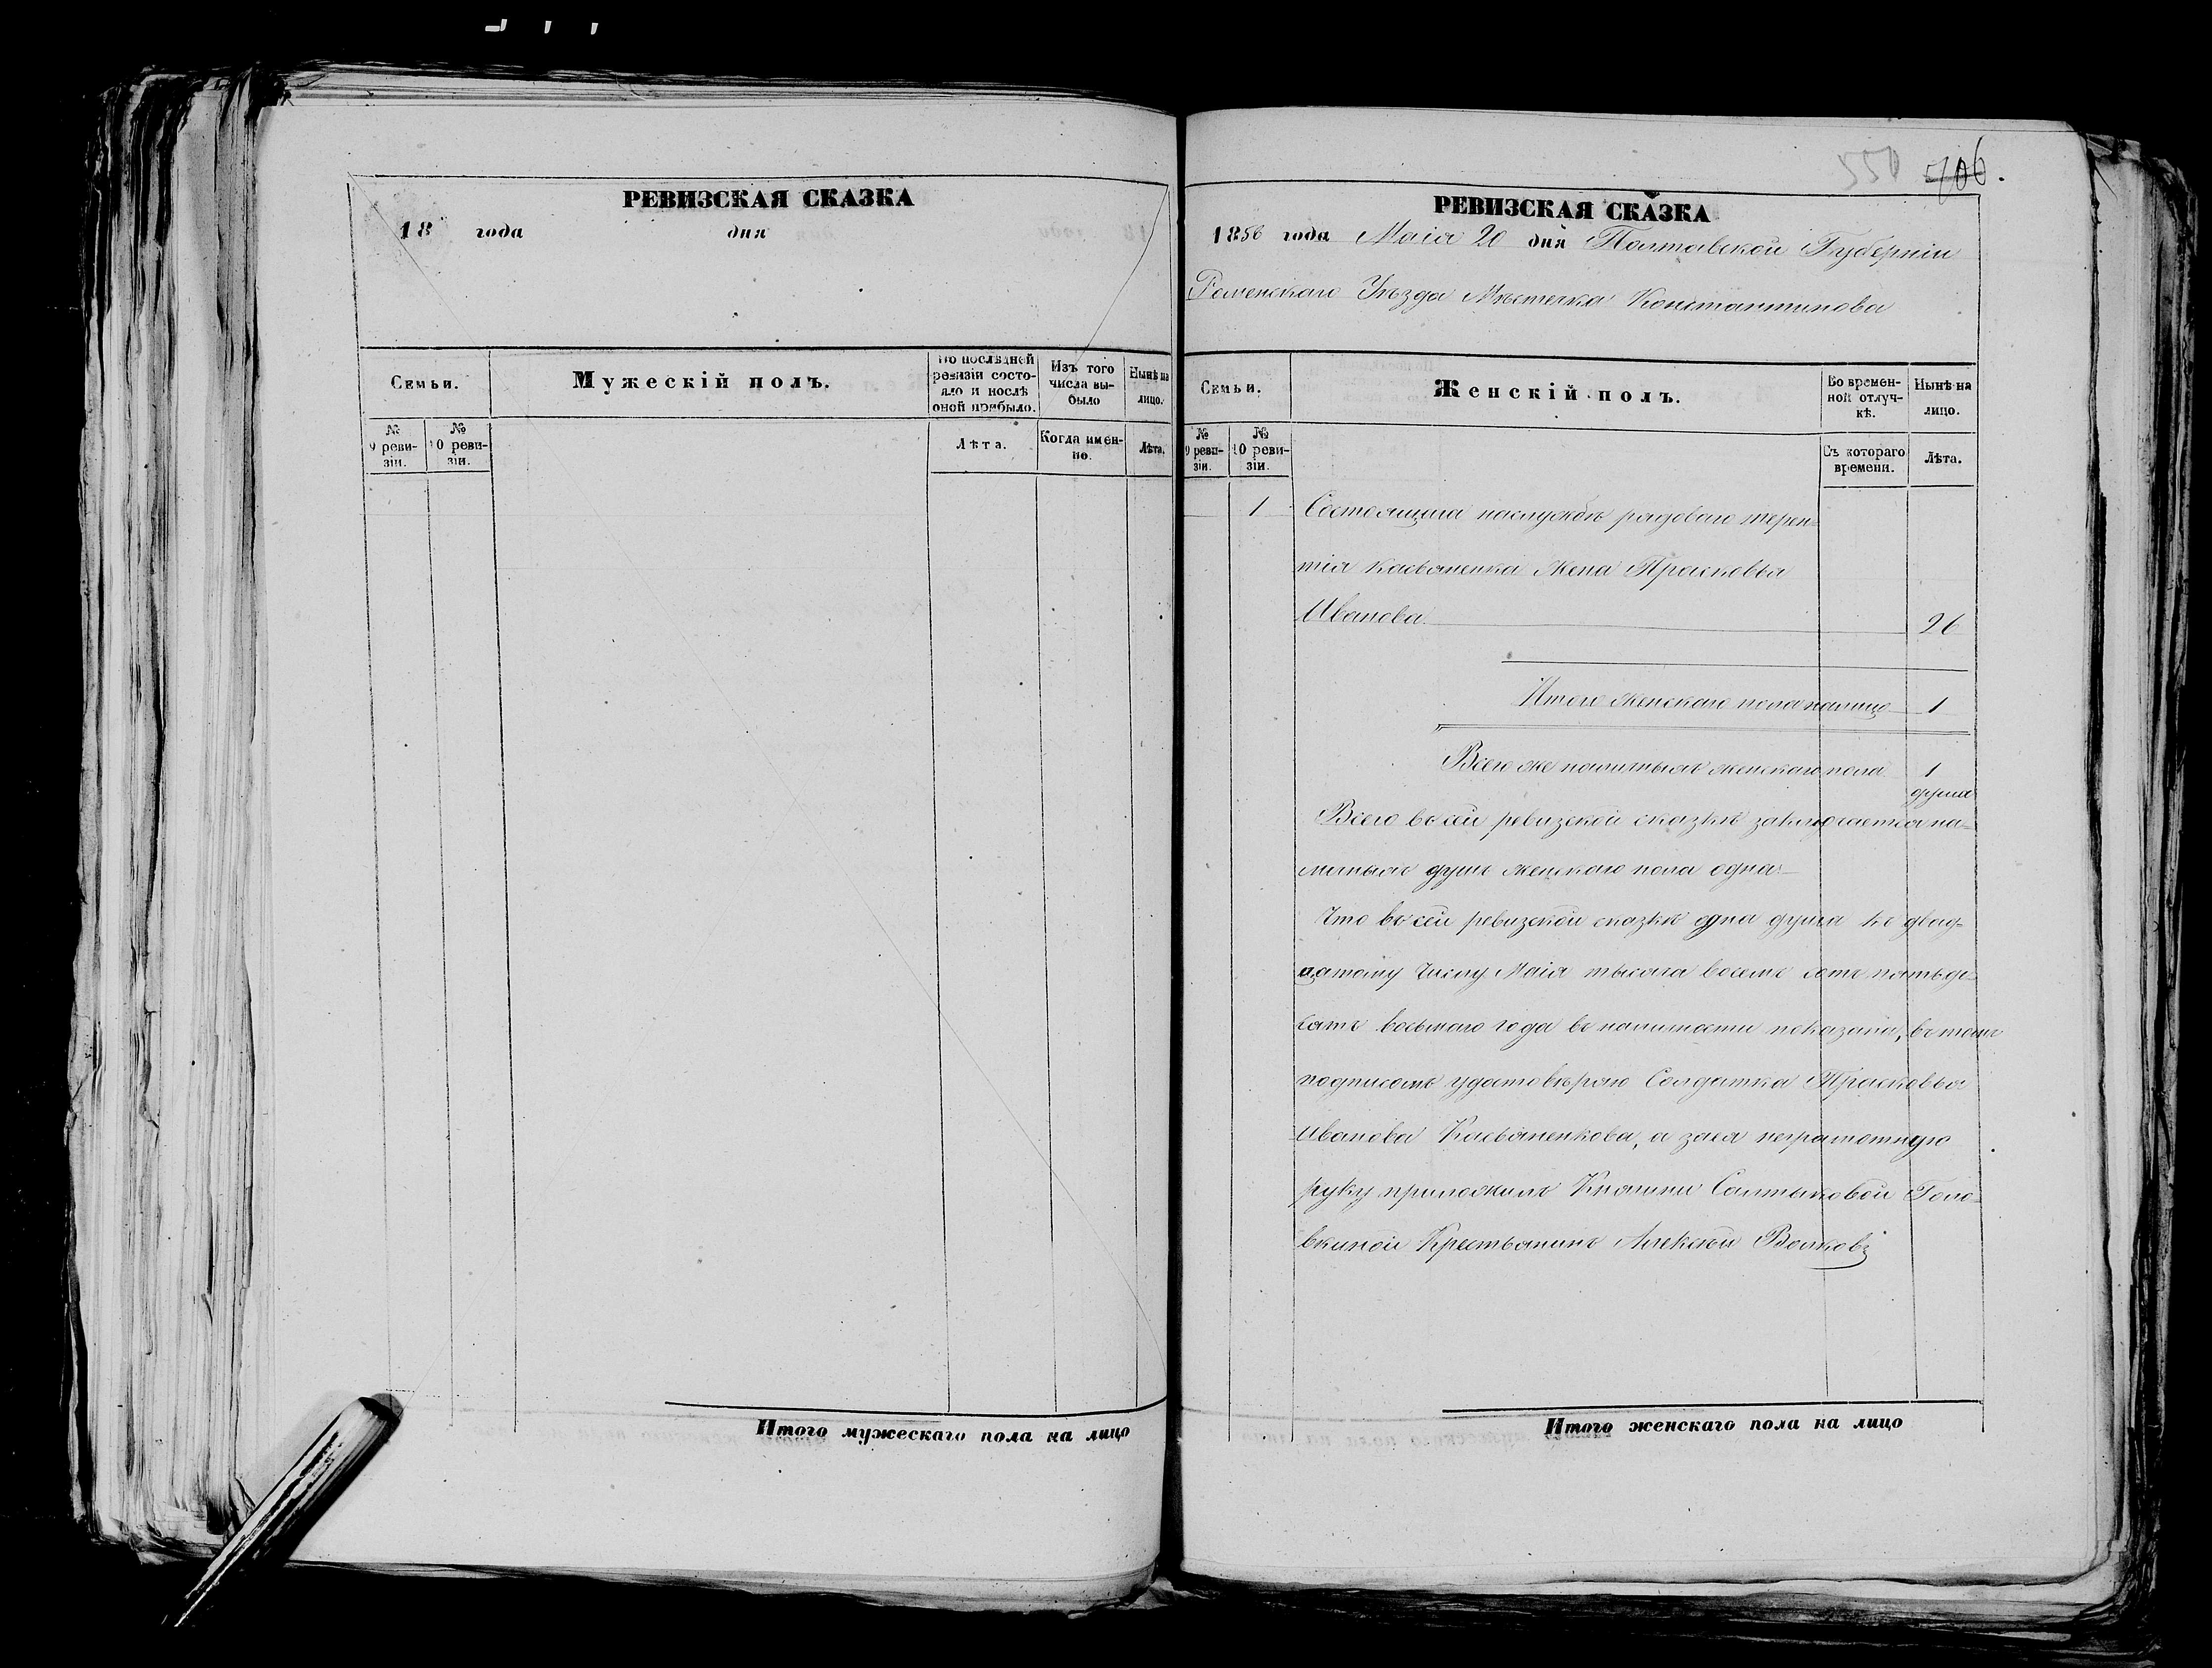 550 706.
РЕВИЗСКАЯ СКАЗКА
18 года дня
Семьи.
Мужескій полъ.
По послѣдней ревизіи состояло и послѣ оной прибыло.
Изъ того числа выбыло
Нынѣ на лицо.
№ 9 ревизіи.
№ 10 ревизіи.
Лѣта.
Когда именно.
Лѣта.
Итого мужескаго пола на лицо
РЕВИЗСКАЯ СКАЗКА
1858 года Маія 20 дня Полтавской Губерніи
Роменскаго Уѣзда Мѣстечка Константинова
Семьи.
Женскій полъ.
Во временной отлучкѣ.
Нынѣ на лицо.
№ 9 ревизіи.
№ 10 ревизіи.
Съ котораго времени.
Лѣта.
1 Состоящаго наслужбѣ рядоваго терен-
тія касьяненка Жена Прасковья
Иванова 26
Итого женскаго пола налицо 1
Всего же наличныхъ женскаго пола 1
душа
Всего въ сей ревизской сказкѣ заключается на-
личныхъ душъ женскаго пола одна
Что въ сей ревизской сказкѣ одна душа къ двад-
цатому числу Маія тысяча восемь сотъ пятьде-
сятъ восьмаго года въ наличности показана, въ томъ
подписомъ удостовѣряю Солдатка Прасковья
Иванова Касьяненкова, а за ея неграмотную
руку приложилъ Княгини Салтыковой Голо-
вкиной Крестьянинъ Алексѣй Волковъ
Итого женскаго пола на лицо